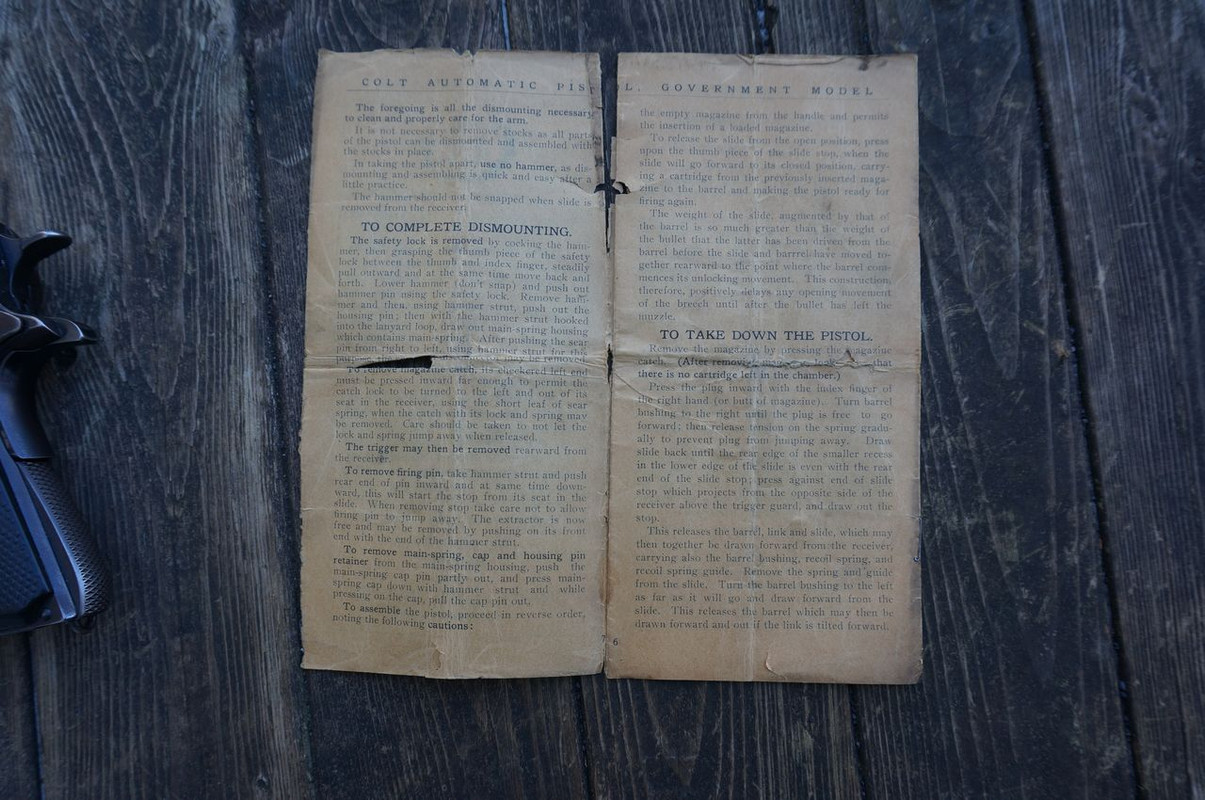 COLT AUTOMATIC PIS
The foregoing is all the dismounting necessary
to clean and properly care for the arm.
It is not necessary to remove stocks as all parts
of the pistol can be dismounted and assembled with
the stocks in place.
In taking the pistol apart, use no hammer, as dis-
mounting and assembling is quick and easy after a
little practice.
The hammer should not be snapped when slide is
removed from the receiver.
TO COMPLETE DISMOUNTING.
The safety lock is removed by cocking the ham-
mer, then grasping the thumb piece of the safety
lock between the thumb and index finger, steadily
pull outward and at the same time move back and
forth. Lower hammer (don't snap) and push out
hammer pin using the safety lock. Remove ham-
mer and then, using hammer strut, push out the
housing pin; then with the hammer strut hooked
into the lanyard loop, draw out main-spring housing
which contains main-spring. After pushing the sear
pin from right to left, using hammer strut for this
may be removed
To remove magazine catch, its checkered left end
must be pressed inward far enough to permit the
catch lock to be turned to the left and out of its
seat in the receiver, using the short leaf of sear
spring, when the catch with its lock and spring may
be removed. Care should be taken to not let the
lock and spring jump away when released.
The trigger may then be removed rearward from
the receiver.
To remove firing pin, take hammer strut and push
rear end of pin inward and at same time down-
ward, this will start the stop from its seat in the
slide. When removing stop take care not to allow
firing pin to jump away. The extractor is now
free and may be removed by pushing on its front
end with the end of the hammer strut.
To remove main-spring, cap and housing pin
retainer from the main-spring housing, push the
main-spring cap pin partly out, and press main-
spring cap down with hammer strut and while
pressing on the cap, pull the cap pin out.
To assemble the pistol, proceed in reverse order,
noting the following cautions:
7
L. GOVERNMENT MODEL
the empty magazine from the handle and permits
the insertion of a loaded magazine.
To release the slide from the open position, press
upon the thumb piece of the slide stop, when the
slide will go forward to its closed position, carry-
ing a cartridge from the previously inserted maga-
zine to the barrel and making the pistol ready for
firing again.
The weight of the slide, augmented by that of
the barrel is so much greater than the weight of
the bullet that the latter has been driven from the
barrel before the slide and barrrel have moved to-
gether rearward to the point where the barrel com-
mences its unlocking movement. This construction,
therefore, positively delays any opening movement
of the breech until after the bullet has left the
muzzle.
TO TAKE DOWN THE PISTOL.
Remove the magazine by pressing the magazine
catch. (After that
there is no cartridge left in the chamber.)
Press the plug inward with the index finger of
the right hand (or butt of magazine). Turn barrel
bushing to the right until the plug is free to go
forward; then release tension on the spring gradu-
ally to prevent plug from jumping away. Draw
slide back until the rear edge of the smaller recess
in the lower edge of the slide is even with the rear
end of the slide stop; press against end of slide
stop which projects from the opposite side of the
receiver above the trigger guard, and draw out the
stop.
This releases the barrel, link and slide, which may
then together be drawn forward from the receiver,
carrying also the barrel bushing, recoil spring, and
recoil spring guide. Remove the spring and guide
from the slide. Turn the barrel bushing to the left
as far as it will go and draw forward from the
slide. This releases the barrel which may then be
drawn forward and out if the link is tilted forward.
6